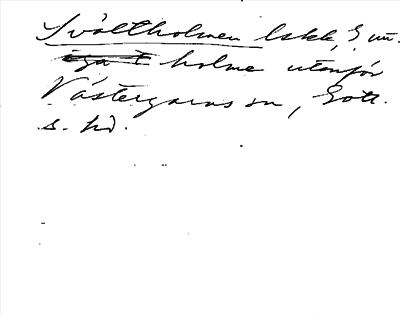 Svältholmen lskk, 
holme utanför
Västergarns sn, Gotl.
s. hd.